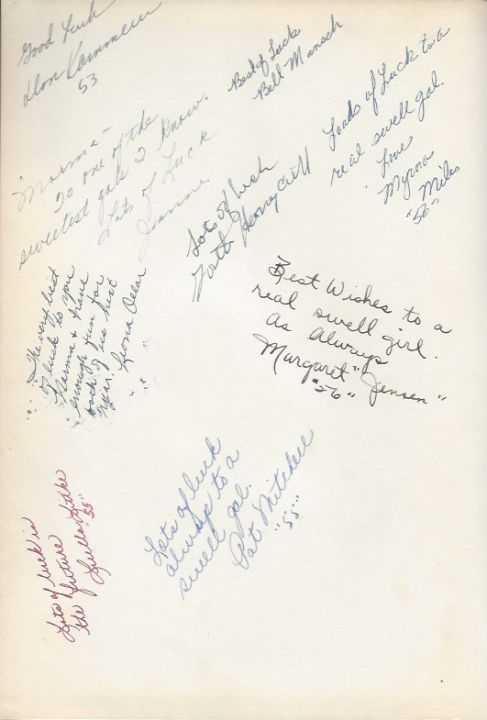 Good Luck
Don
53
Best of Luck
Bill Munsch
Loads of Luck to a
real swell gal.
Love
Myrna
Miles
"56"
Norma-
To one of the
sweetest gals I know.
Lots of Luck
Jeanne
Lots of luck
The very best
of luck to you
Norma & have
enough fun for
both of us next
year. Leona
Best Wishes to a
real swell girl.
As Always
Margaret Jensen
"56"
Lots of luck
always to a
swell gal.
Pat Mitchell
"55"
Lots of luck in
the future
Luella
"55"